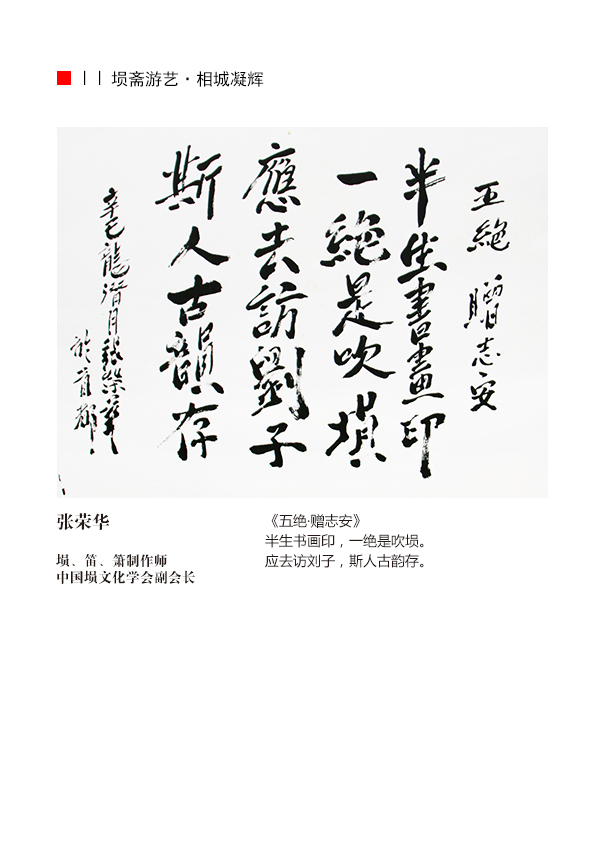 埙斋游艺·相城凝辉
五絕 贈志安
半生書畫印
一絕是吹塤
應去訪劉子
斯人古韻存
辛巳龍潛月張榮華
於首都
张荣华
埙、笛、箫制作师
中国埙文化学会副会长
《五绝·赠志安》
半生书画印，一绝是吹埙。
应去访刘子，斯人古韵存。